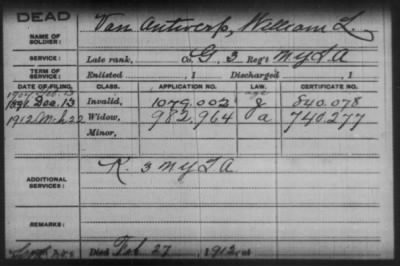 DEAD
NAME OF SOLDIER: Van Antwerp, William L.
SERVICE: Late rank, Co. G, 3 Reg't N.Y.L.A
TERM OF SERVICE: Enlisted , 1 Discharged , 1
DATE OF FILING. CLASS. APPLICATION NO. LAW. CERTIFICATE NO.
1891 Dec. 13 Invalid, 1079.002 g 840.078
1912 Mch 22 Widow, 982,964 a 740.277
Minor,
ADDITIONAL SERVICES: K. 3 N Y L A
REMARKS:
Died Feb 27, 1912, at